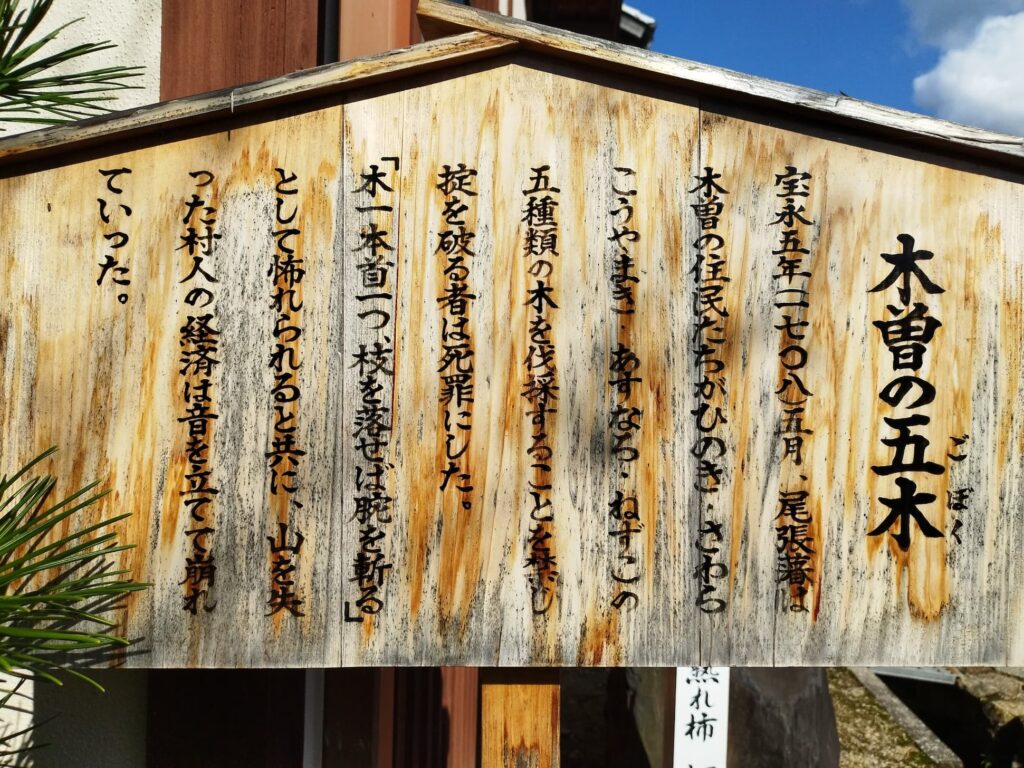 木曽の五木
ごぼく
宝永五年一七〇八五月、尾張藩は
木曽の住民たちがひのき・さわら
こうやまき・あすなろ・ねずこの
五種類の木を伐採することを禁じ
掟を破る者は死罪にした。
「木一本首一つ、枝を落せば腕を斬る」
として怖れられると共に、山を失
った村人の経済は音を立てて崩れ
ていった。
熟れ柿